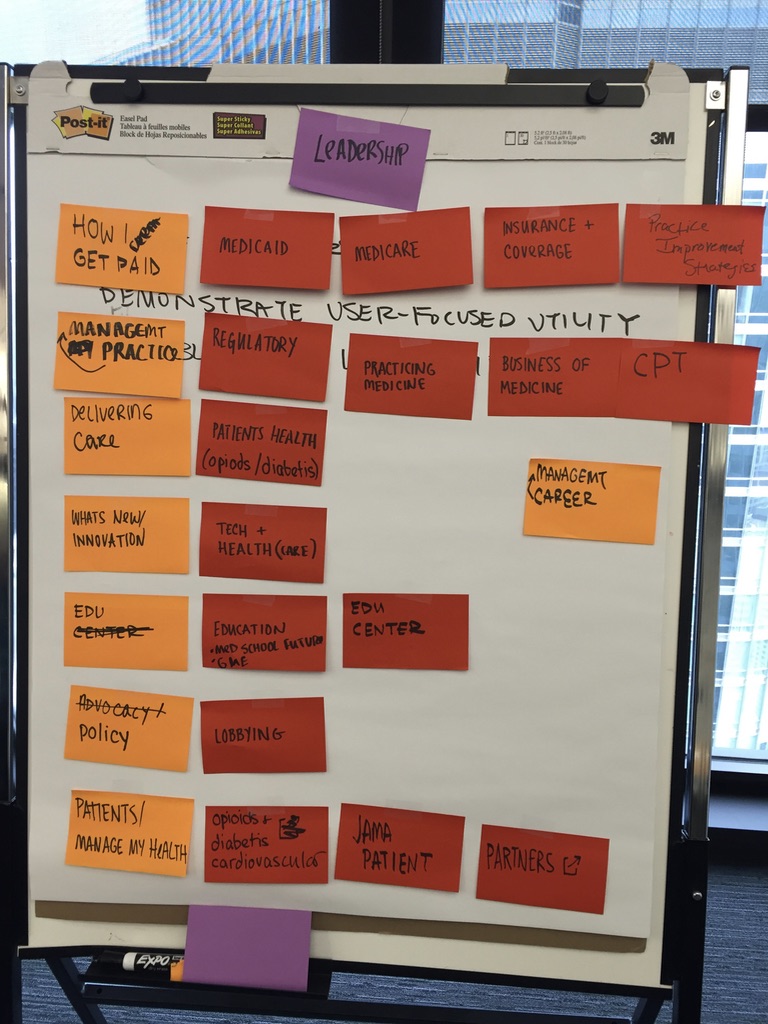 Post-it
Easel Pad
Tableau à feuilles mobiles
Block de Hojas Reposicionables
Super Sticky
Super Collant
Super Adhesivas
3M
LEADERSHIP
HOW I
GET PAID
MEDICAID
MEDICARE
INSURANCE +
COVERAGE
Practice
Improvement
Strategies
DEMONSTRATE USER-FOCUSED UTILITY
MANAGEMT
PRACTICE
REGULATORY
PRACTICING
MEDICINE
BUSINESS OF
MEDICINE
CPT
DELIVERING
CARE
PATIENTS HEALTH
(opiods/diabetis)
MANAGEMT
CAREER
WHATS NEW/
INNOVATION
TECH +
HEALTH (CARE)
EDU
CENTER
EDUCATION
• MED SCHOOL FUTURE
• GME
EDU
CENTER
ADVOCACY/
POLICY
LOBBYING
PATIENTS/
MANAGE MY HEALTH
opioids +
diabetis
cardiovascular
JAMA
PATIENT
PARTNERS
EXPO